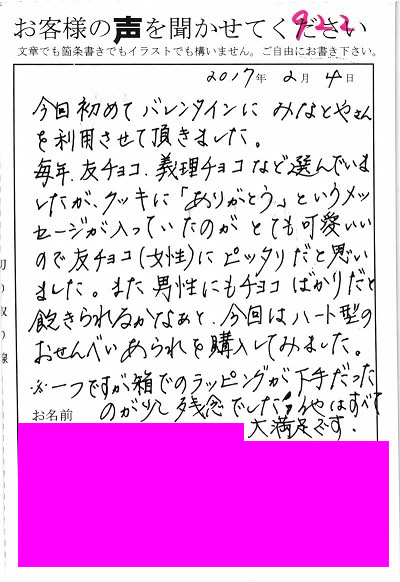 お客様の声を聞かせてください
922
文章でも箇条書きでもイラストでも構いません。ご自由にお書き下さい。
2017年 2月 4日
今回初めてバレンタインにみなとやさん
を利用させて頂きました。
毎年、友チョコ、義理チョコなど選んでいま
したが、クッキーに「ありがとう」というメッ
セージが入っていたのがとても可愛いい
ので友チョコ(女性)にピッタリだと思い
ました。また男性にもチョコばかりだと
飽きられるかなぁと、今回はハート型の
おせんべいあられを購入してみました。
※一つですが箱でのラッピングが下手だった
のが少し残念でした 他はすべて
大満足です。
お名前
切り取り線